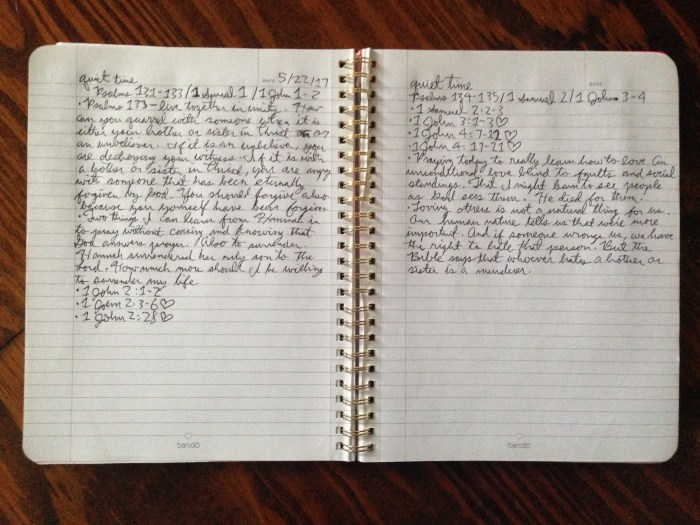 quiet time DATE 5/22/17
Psalms 131-133/1 Samuel 1/1 John 1-2
• Psalms 133-live together in unity. How
can you quarrel with someone when it is
either your brother or sister in Christ or
an unbeliever. If it is an unbeliever, you
are destroying your witness. If it is with
a brother or sister in Christ, you are angry
with someone that has been eternally
forgiven by God. You should forgive also
because you yourself have been forgiven.
• Two things I can learn from Hannah is
to pray without ceasing and knowing that
God answers prayer. Also to surrender.
Hannah surrendered her only son to the
Lord. How much more should I be willing
to surrender my life.
• 1 John 2:1-2
• 1 John 2:3-6 ♡
• 1 John 2:28 ♡
ban.dō
quiet time DATE
Psalms 134-135/1 Samuel 2/1 John 3-4
• 1 Samuel 2:2-3
• 1 John 3:1-3 ♡
• 1 John 4:7-12 ♡
• 1 John 4:17-21 ♡
• Praying today to really learn how to love. An
unconditional love blind to faults and social
standings. That I might learn to see people
as God sees them. He died for them.
• Loving others is not a natural thing for us.
Our human nature tells us that we're more
important. And if someone wrongs us, we have
the right to hate that person. But the
Bible says that whoever hates a brother or
sister is a murderer.
ban.dō